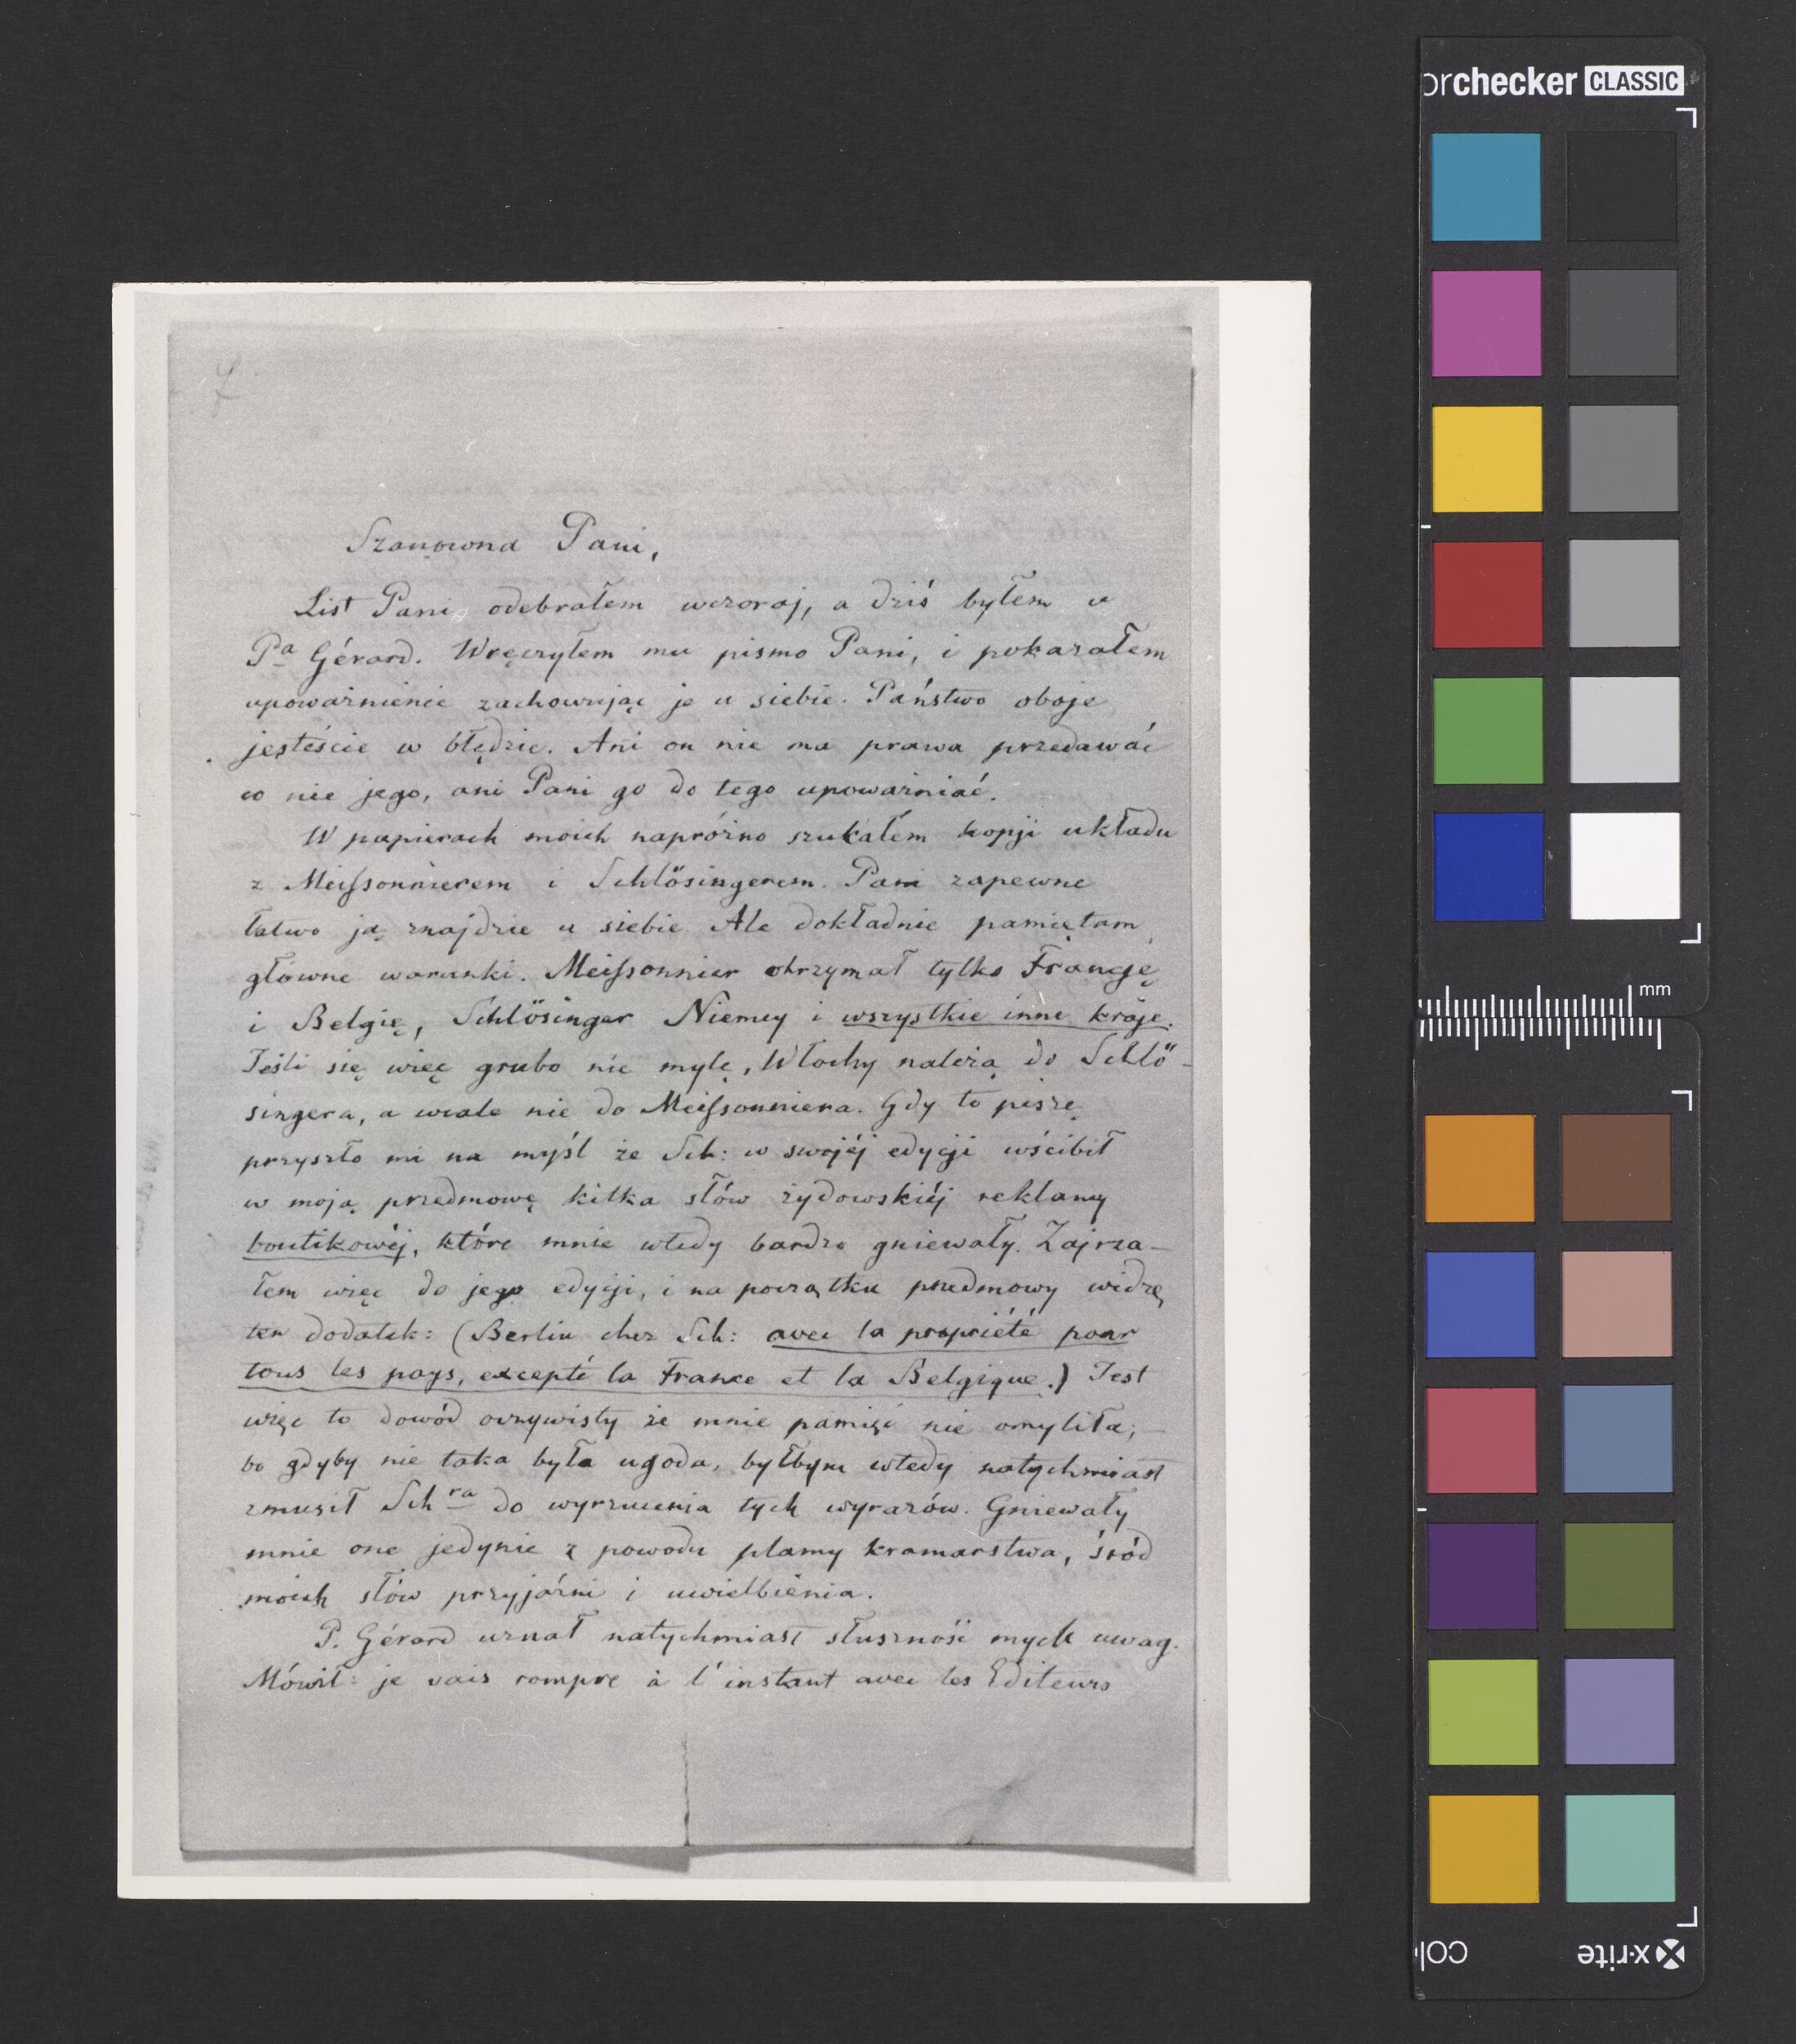 orchecker CLASSIC
Szanowna Pani,
List Pani odebrałem wczoraj, a dziś byłem u
Pa Gérard. Wręczyłem mu pismo Pani, i pokazałem
upoważnienie zachowując je u siebie. Państwo oboje
jesteście w błędzie. Ani on nie ma prawa przedawać
co nie jego, ani Pani go do tego upoważniać.
W papierach moich napróżno szukałem kopji układu
z Meissonnierem i Schlösingerem. Pani zapewne
łatwo ją znajdzie u siebie. Ale dokładnie pamiętam
główne warunki. Meissonnier otrzymał tylko Francję
i Belgię, Schlösinger Niemcy i wszystkie inne kraje.
Jeśli się więc grubo nie mylę, Włochy należą do Schlö-
singera, a wcale nie do Meissonniera. Gdy to piszę
przyszło mi na myśl że Sch: w swojéj edycji wścibił
w moją przedmowę kilka słów żydowskiéj reklamy
boutikowéj, które mnie wtedy bardzo gniewały. Zajrza-
łem więc do jego edycji, i na początku przedmowy widzę
ten dodatek: (Berlin chez Sch: avec la propriété pour
tous les pays, excepté la France et la Belgique.) Jest
więc to dowód oczywisty że mnie pamięć nie omyliła;
bo gdyby nie taka była ugoda, byłbym wtedy natychmiast
zmusił Sch ra do wyrzucenia tych wyrazów. Gniewały
mnie one jedynie z powodu plamy kramarstwa, śród
moich słów przyjaźni i uwielbienia.
P. Gérard uznał natychmiast słuszność mych uwag.
Mówił: je vais rompre à l'instant avec les Editeurs
mm
x-rite
col